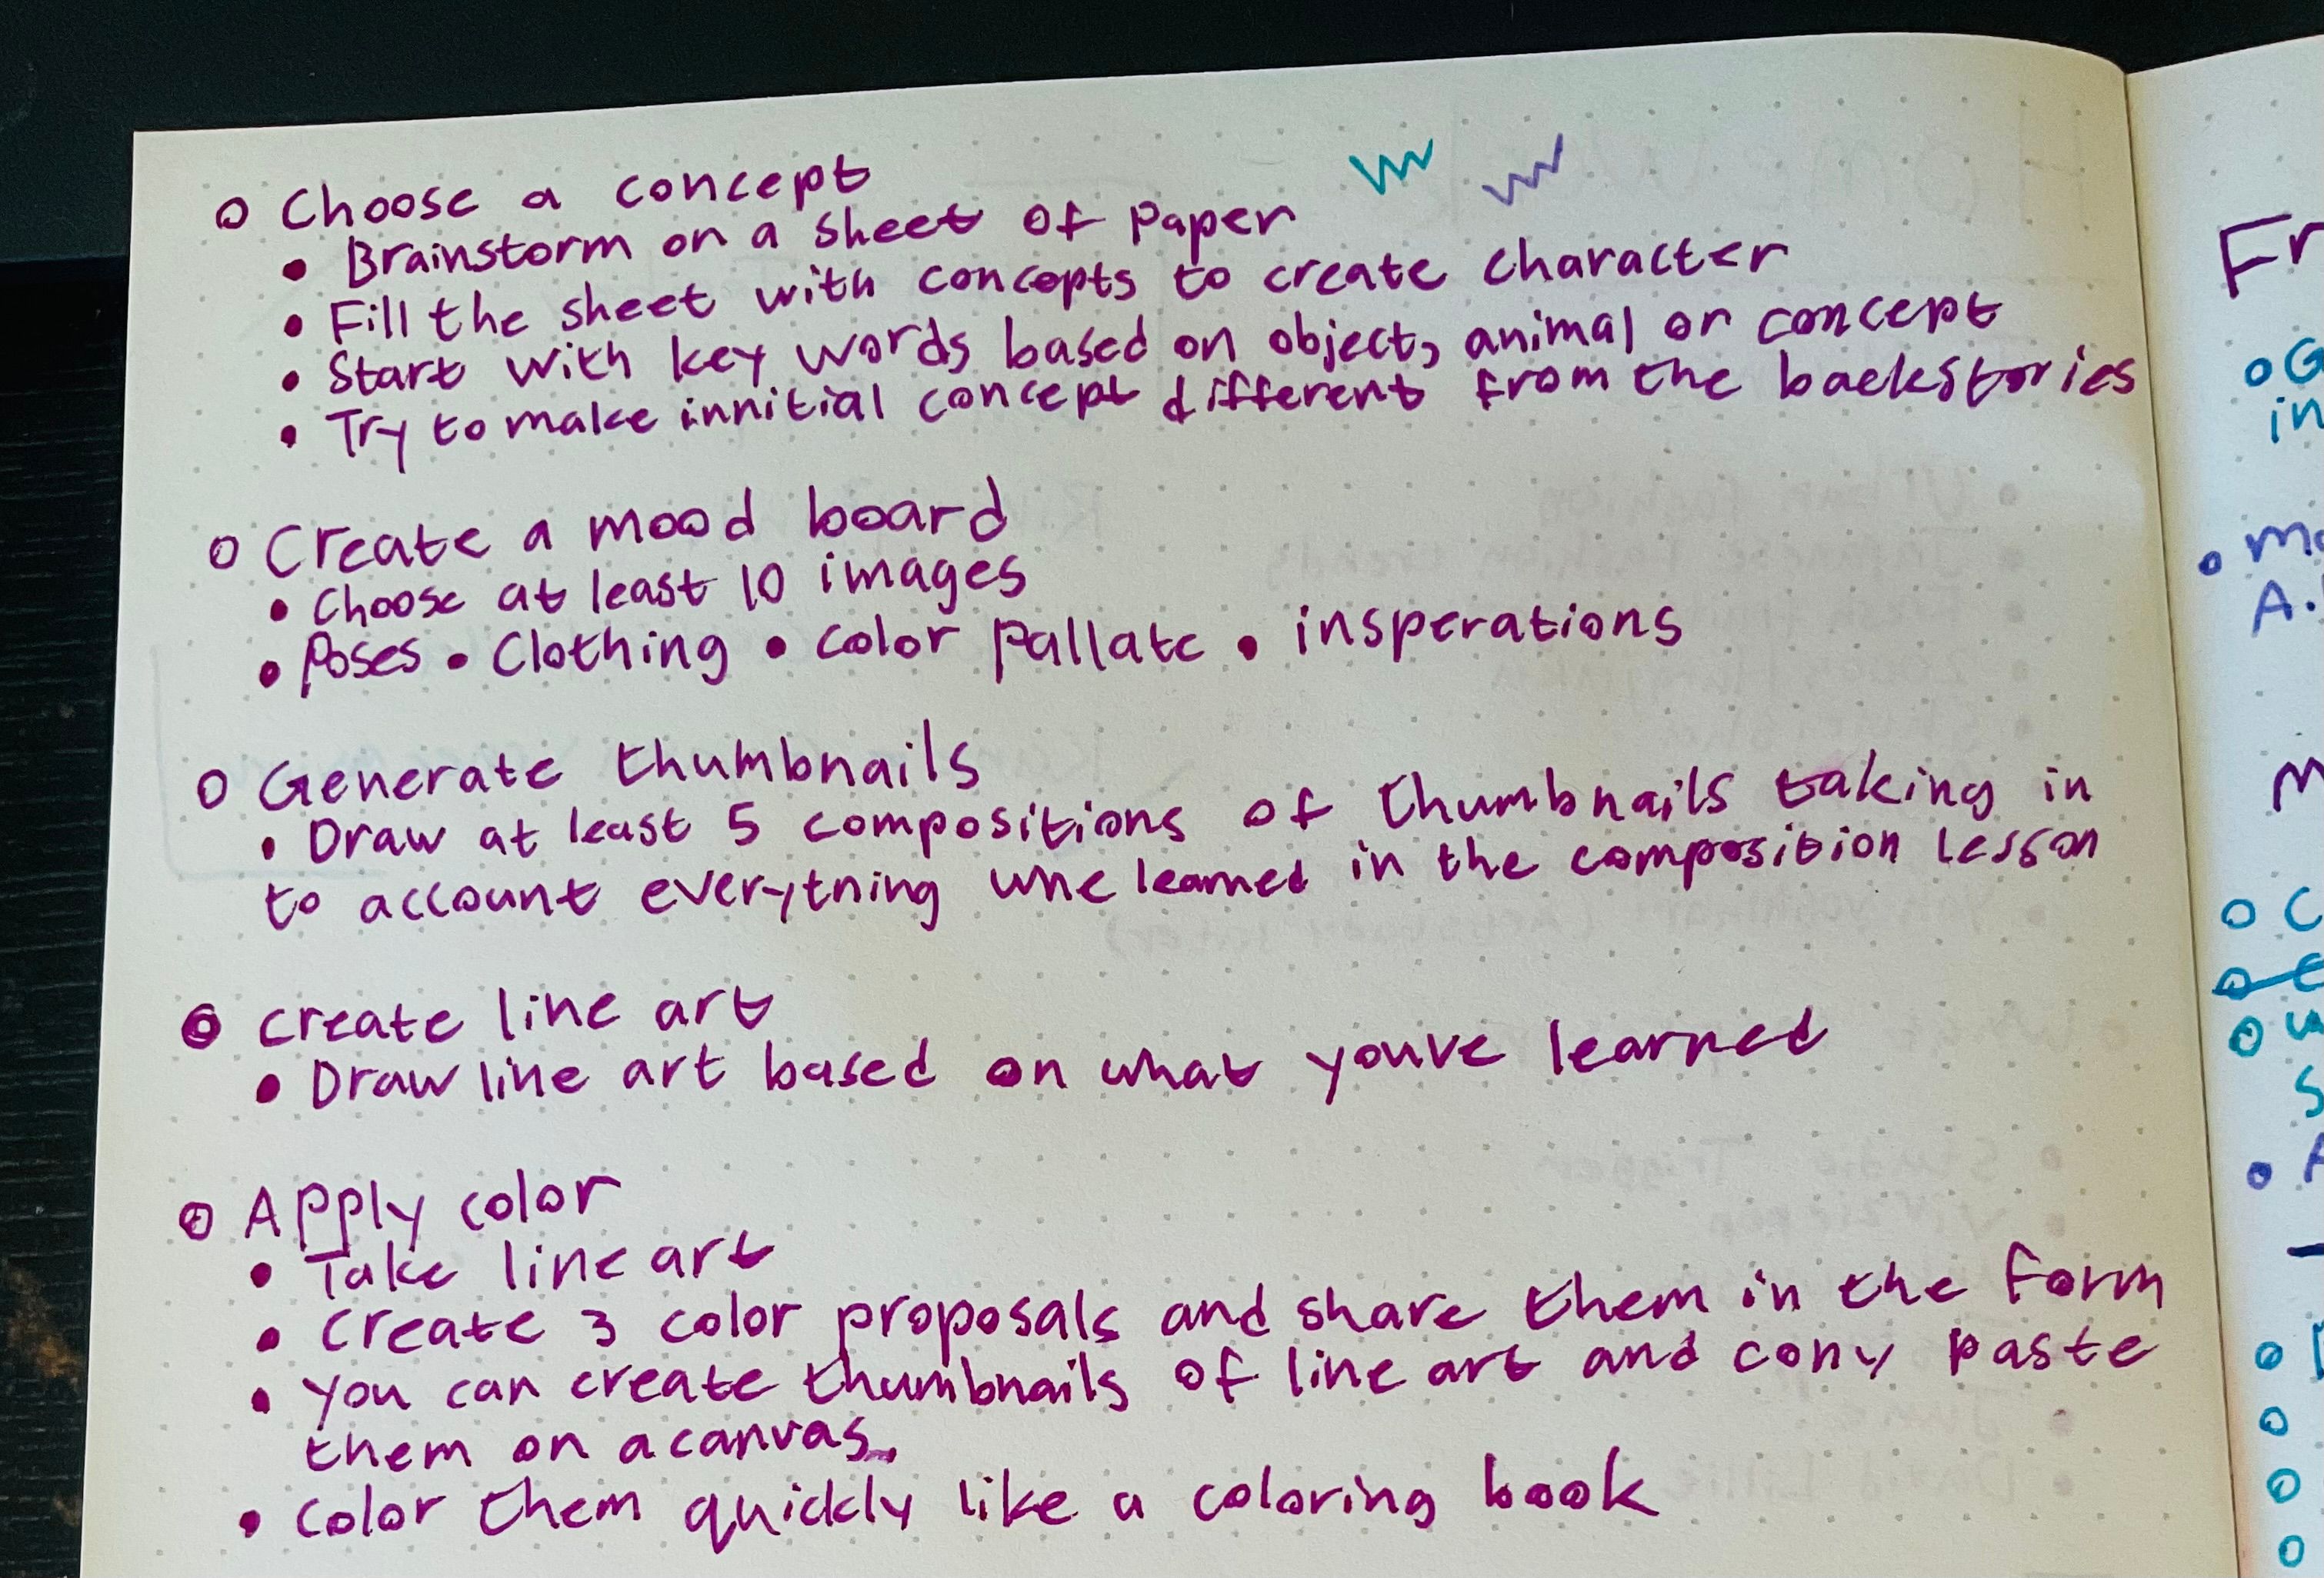 o Choose a concept
• Brainstorm on a sheet of paper
• Fill the sheet with concepts to create character
• Start with key words based on object, animal or concept
• Try to make innitial concept different from the backstories
o Create a mood board
• Choose at least 10 images
• Poses • Clothing • Color Pallate • insperations
o Generate thumbnails
• Draw at least 5 compositions of thumbnails taking in
to account everytning whe learned in the composition lesson
o create line art
• Draw line art based on what youve learned
o Apply color
• Take line art
• Create 3 color proposals and share them in the form
• You can create thumbnails of line art and cony paste
them on a canvas.
• Color them quickly like a coloring book
Fr
o G
in
• m
A.
M
o C
o
• A